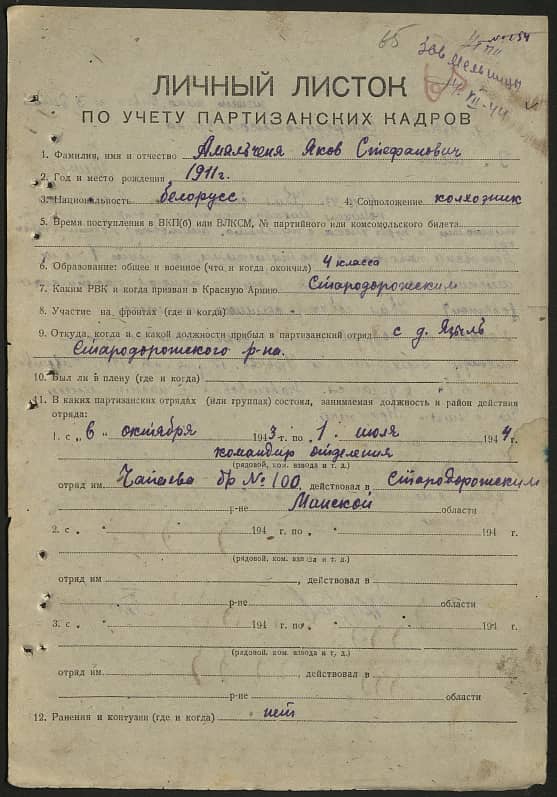 65
Зав Мельницы
ЛИЧНЫЙ ЛИСТОК
ПО УЧЕТУ ПАРТИЗАНСКИХ КАДРОВ
1. Фамилия, имя и отчество Амяльченя Яков Стефанович
2. Год и место рождения 1911г.
3. Национальность белорусс 4. Соцположение колхозник
5. Время поступления в ВКП(б) или ВЛКСМ, № партийного или комсомольского билета
6. Образование: общее и военное (что и когда окончил) 4 класса
7. Каким РВК и когда призван в Красную Армию Стародорожским
8. Участие на фронтах (где и когда)
9. Откуда, когда и с какой должности прибыл в партизанский отряд с д. Языль
Стародорожского р-на.
10. Был ли в плену (где и когда)
11. В каких партизанских отрядах (или группах) состоял, занимаемая должность и район действия
отряда:
1. с „6 „ октября 1943 г. по „ 1 „ июля 1944 г.
командир отделения
(рядовой, ком. взвода и т. д.)
отряд им Чапаева бр № 100, действовал в Стародорожским
р-не Минской области
2. с „ „ 194 г. по „ „ 194 г.
(рядовой, ком. взвода и т. д.)
отряд им , действовал в
р-не области
3. с „ „ 194 г. по „ „ 194 г.
(рядовой, ком. взвода и т. д.)
отряд им , действовал в
р-не области
12. Ранения и контузии (где и когда) нет